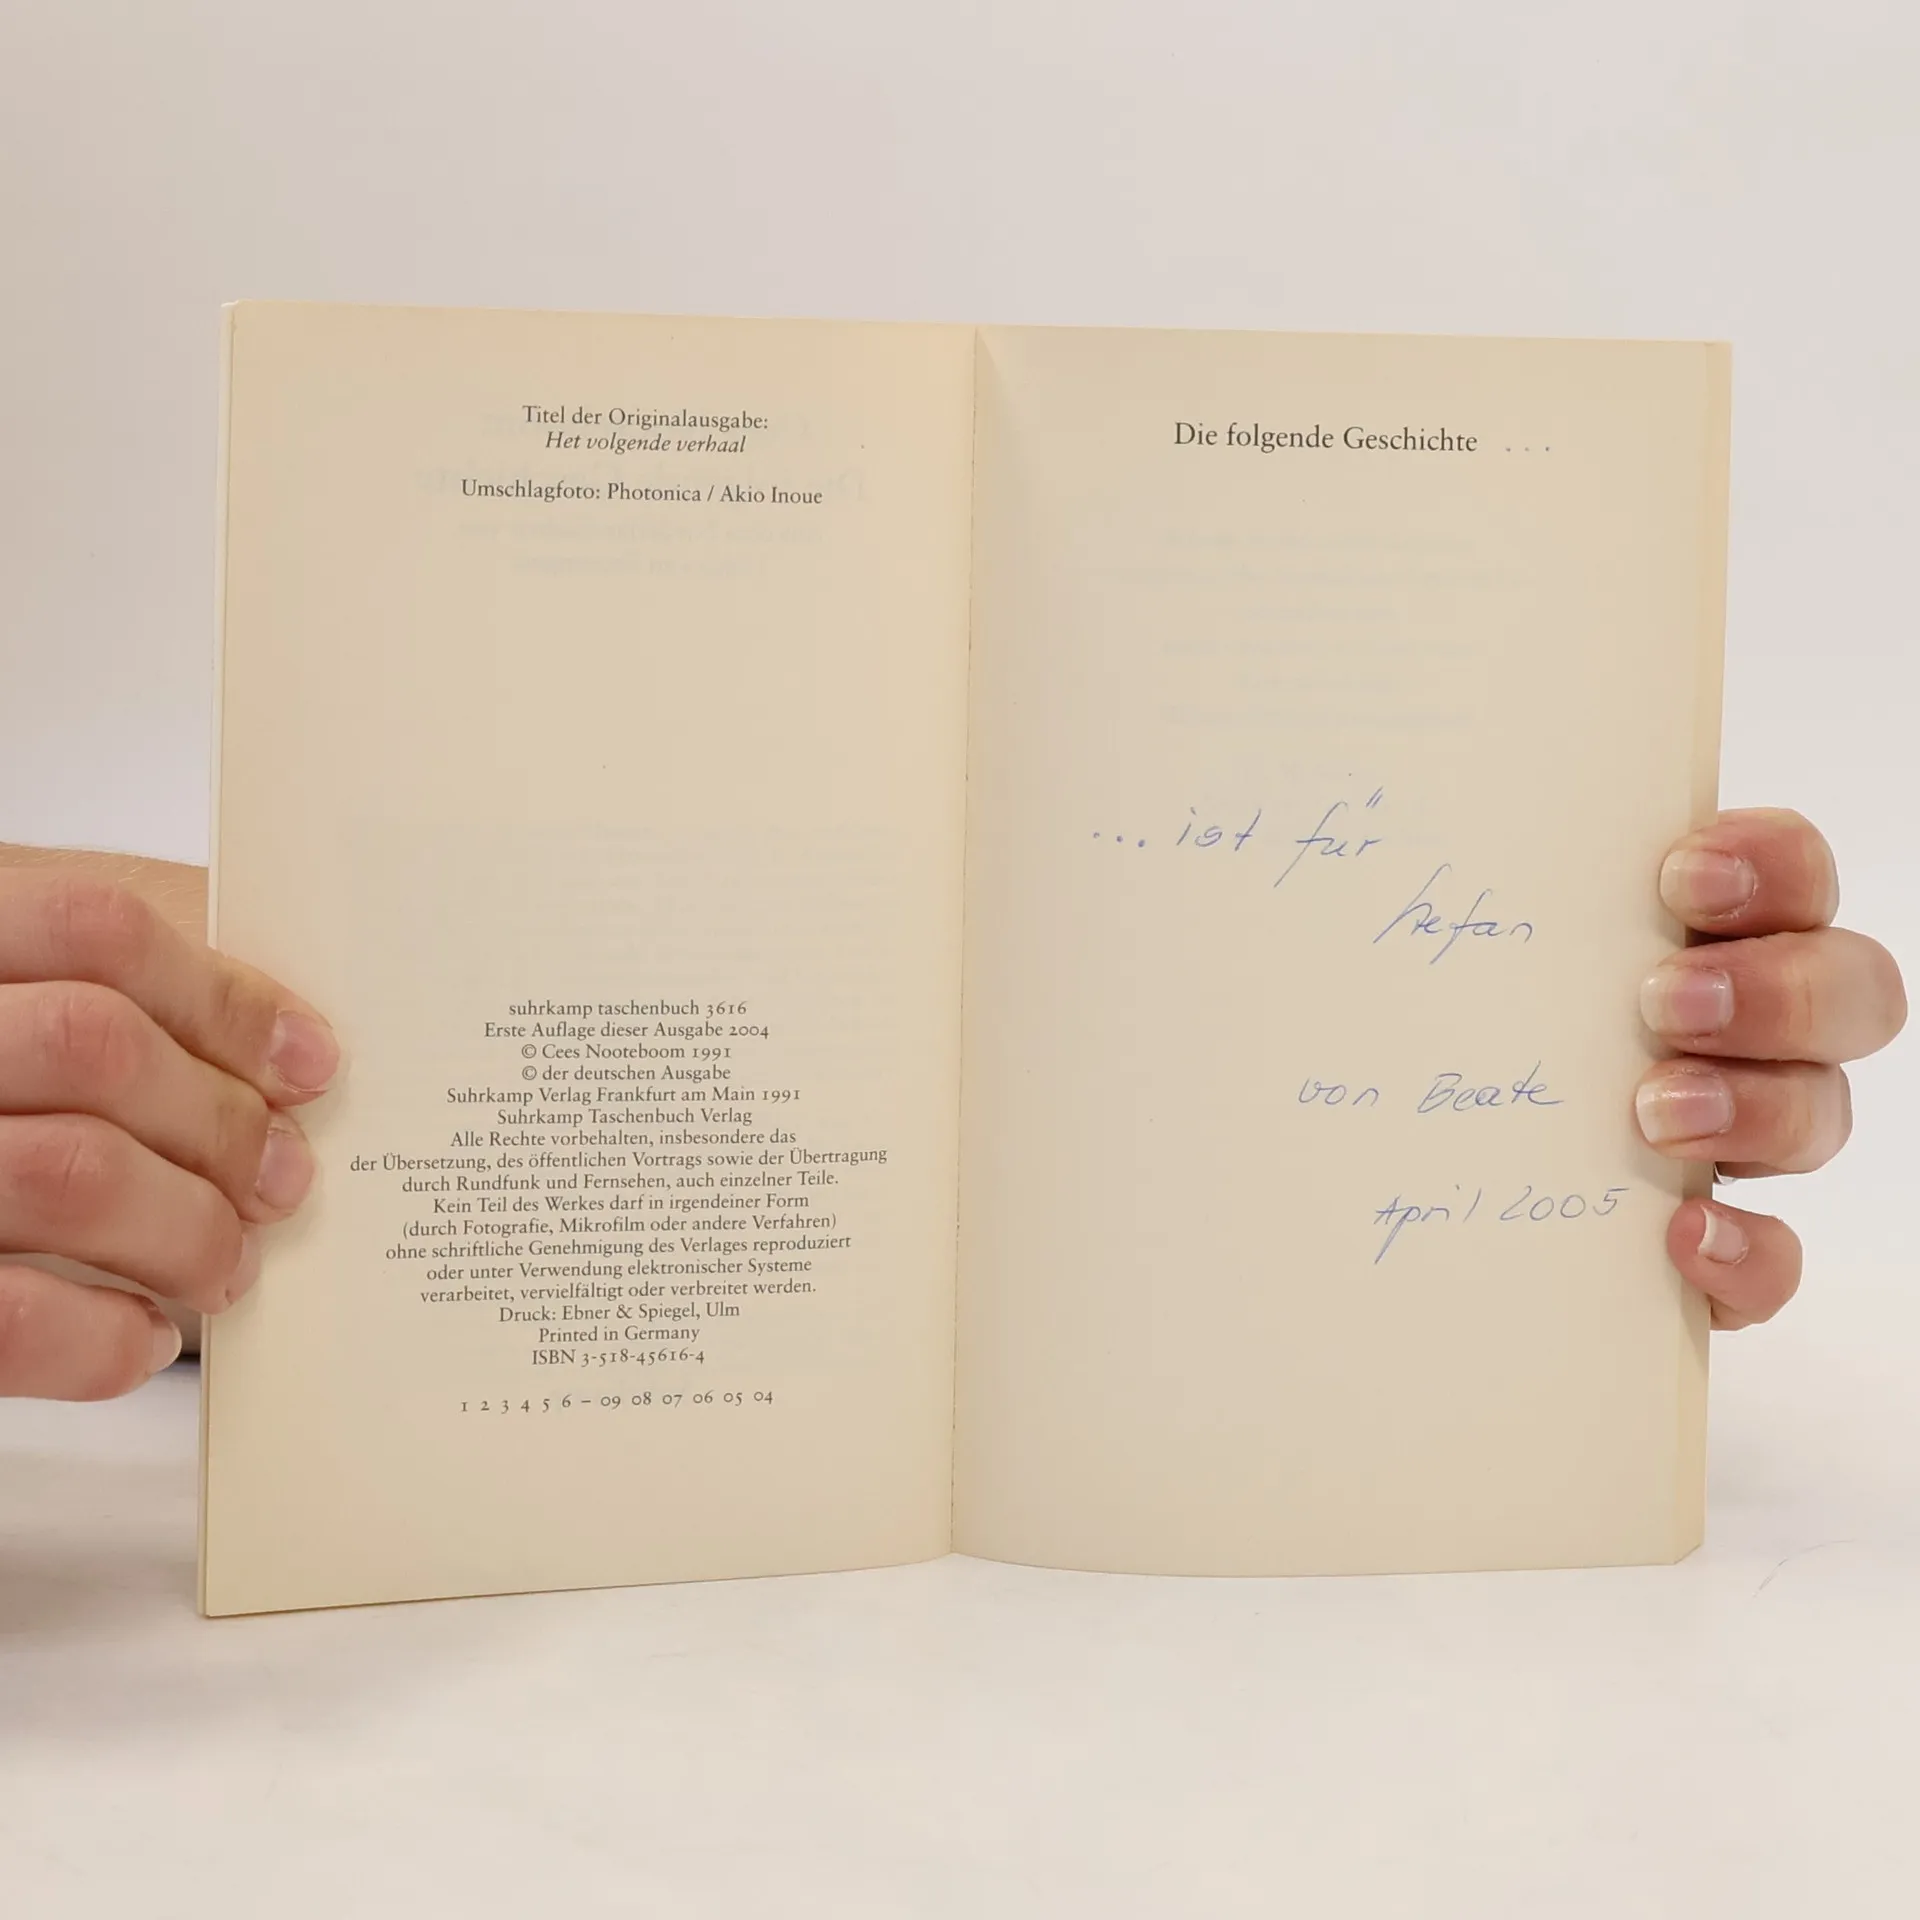 Titel der Originalausgabe:
Het volgende verhaal
Umschlagfoto: Photonica / Akio Inoue
suhrkamp taschenbuch 3616
Erste Auflage dieser Ausgabe 2004
© Cees Nooteboom 1991
© der deutschen Ausgabe
Suhrkamp Verlag Frankfurt am Main 1991
Suhrkamp Taschenbuch Verlag
Alle Rechte vorbehalten, insbesondere das
der Übersetzung, des öffentlichen Vortrags sowie der Übertragung
durch Rundfunk und Fernsehen, auch einzelner Teile.
Kein Teil des Werkes darf in irgendeiner Form
(durch Fotografie, Mikrofilm oder andere Verfahren)
ohne schriftliche Genehmigung des Verlages reproduziert
oder unter Verwendung elektronischer Systeme
verarbeitet, vervielfältigt oder verbreitet werden.
Druck: Ebner & Spiegel, Ulm
Printed in Germany
ISBN 3-518-45616-4
1 2 3 4 5 6 – 09 08 07 06 05 04
Die folgende Geschichte ...
... ist für
Stefan
von Beate
April 2005